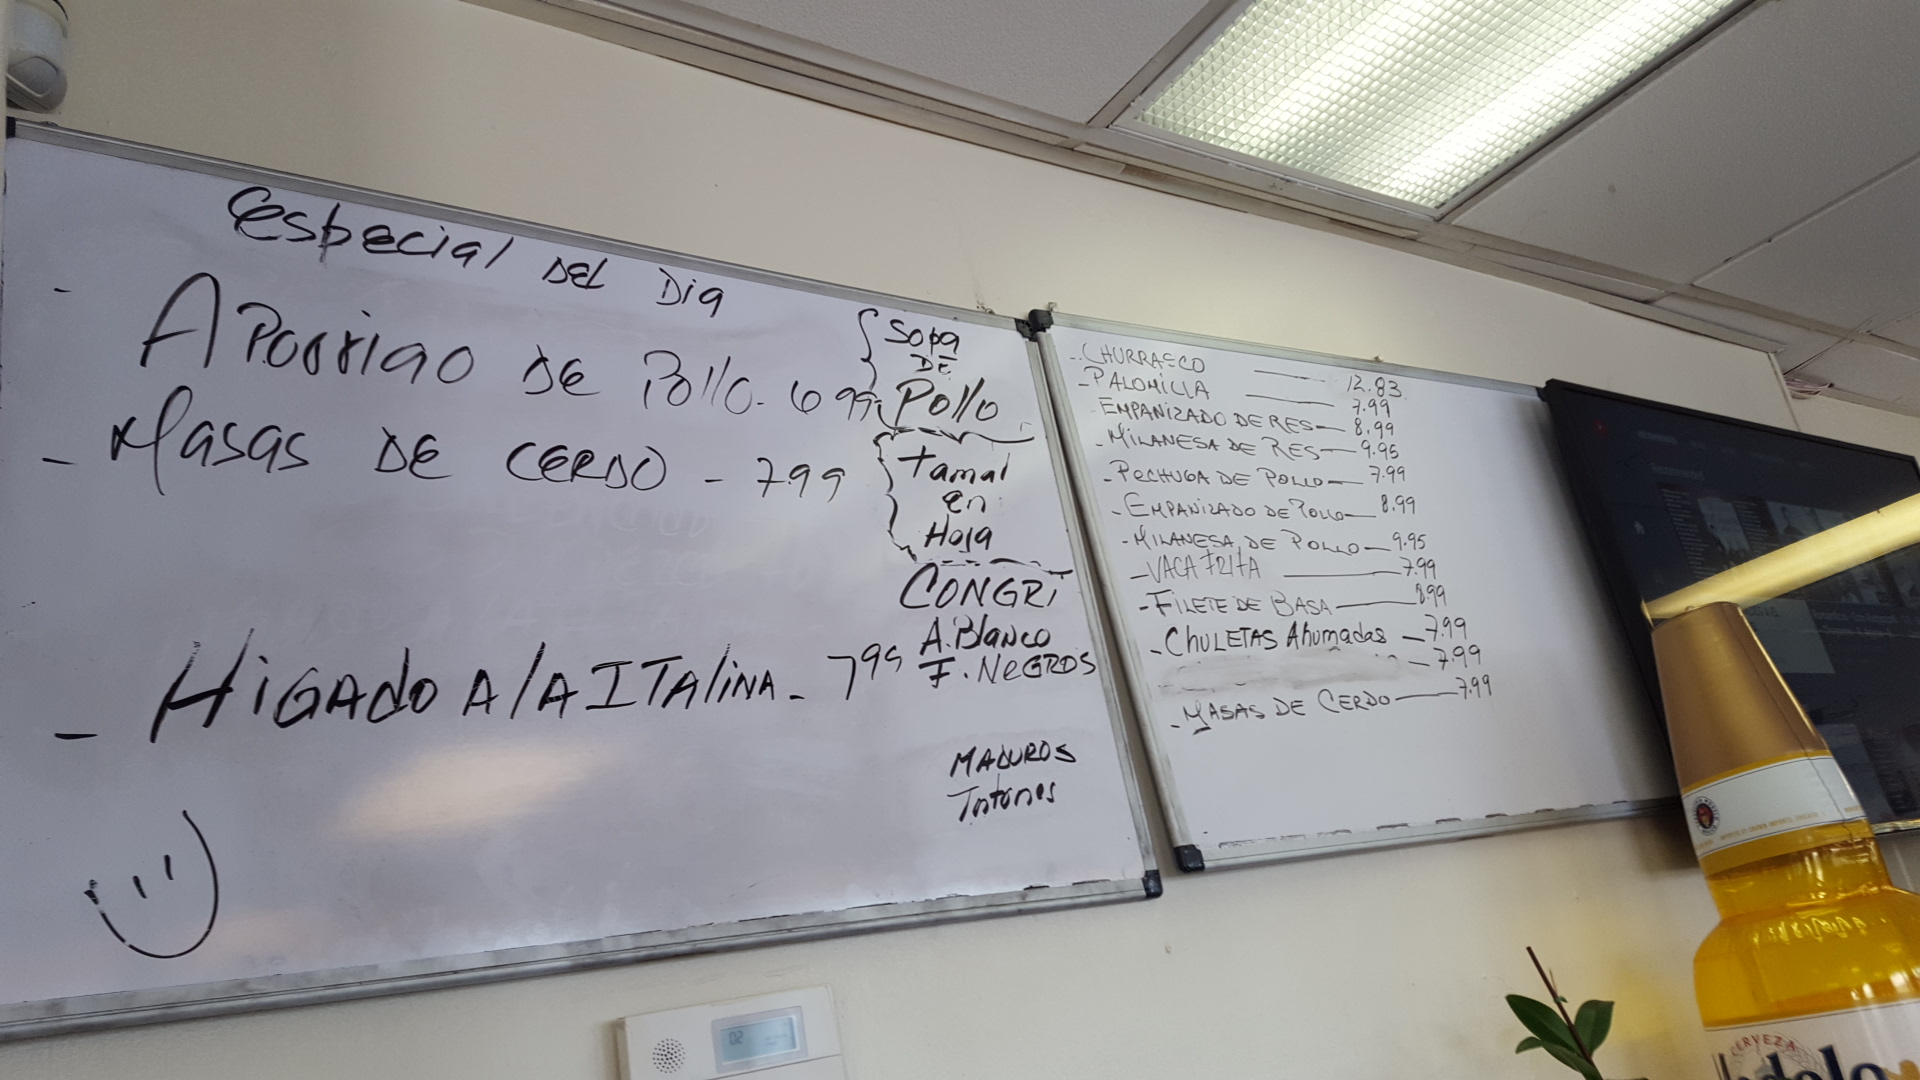 Especial DEL Dia
- APorriao DE Pollo. 6 99
- Masas DE CERDO - 799
- HIGADO A/A ITAlinA - 799
Sopa
DE
Pollo
tamal
en
Hoja
CONGRi
A. Blanco
F. NeGROS
MADUROS
Totones
- CHURRASCO 12.83
- PALOMILLA 7.99
- EMPANIZADO DE RES - 8.99
- MILANESA DE RES - 9.95
- PECHUGA DE POLLO - 7.99
- EMPANIZADO DE POLLO - 8.99
- MILANESA DE POLLO - 9.95
- VACA FRITA - 7.99
- FILETE DE BASA - 8.99
- CHULETAS Ahumadas - 7.99
- 7.99
- MASAS DE CERDO - 7.99
CERVEZA